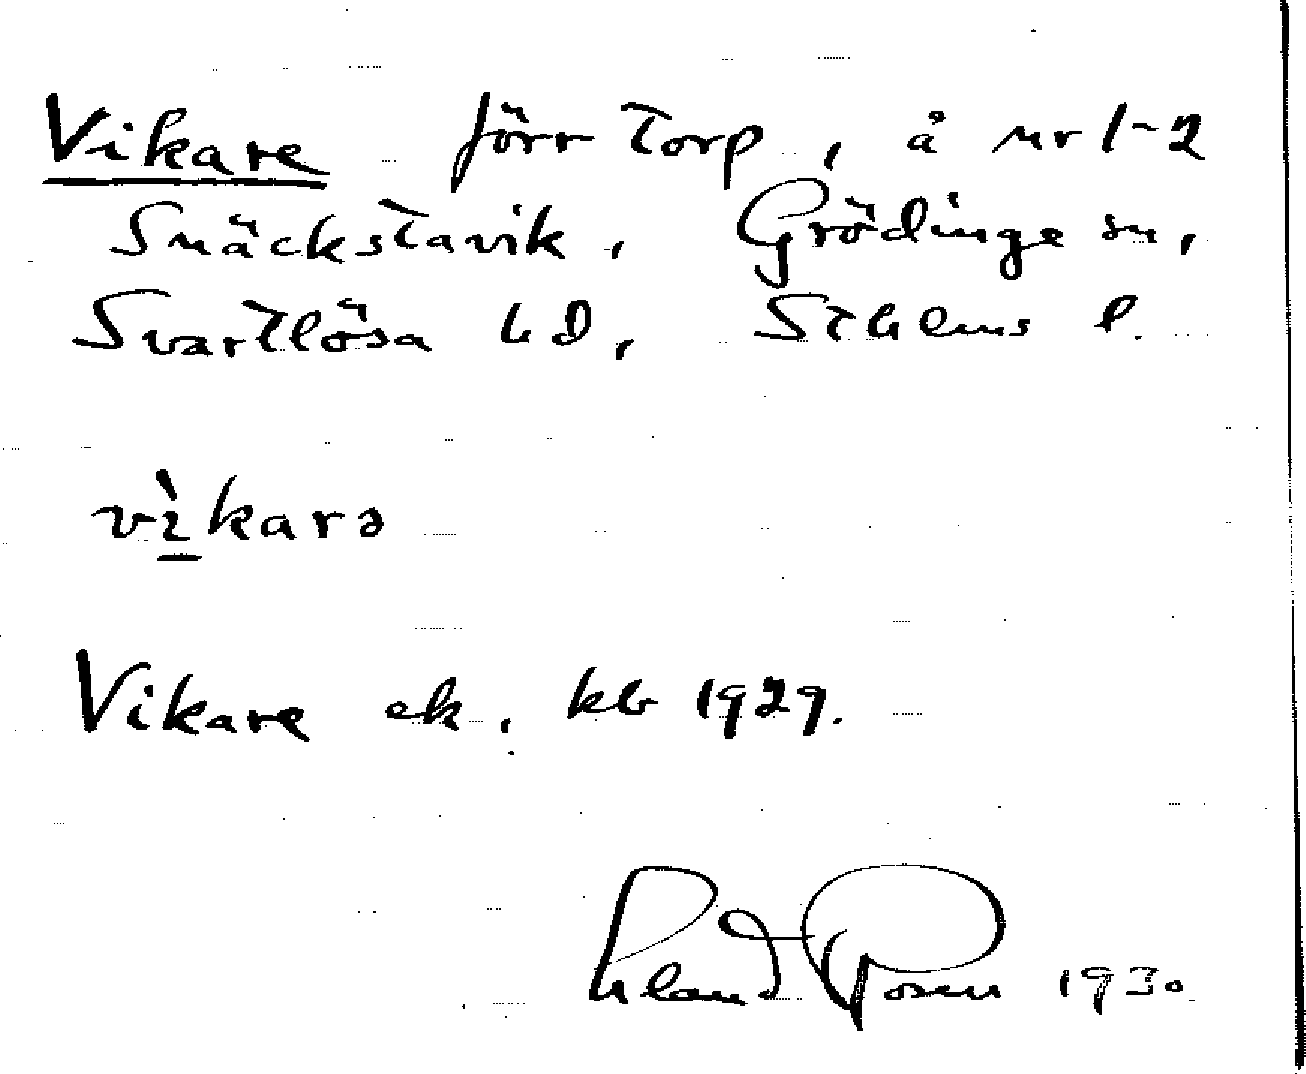 Vikare förr torp, å nr 1-2
Snäckstavik, Grödinge sn,
Svartlösa hd, Sthlms l.
vìkarə
Vikare ek. kb 1929.
Rosén 1930